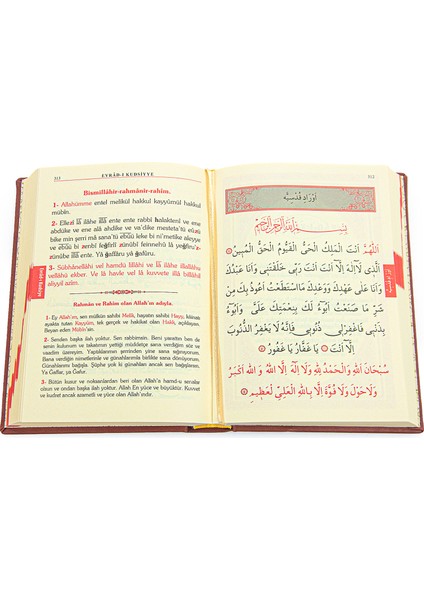 313
EVRÂD-I KUDSİYYE
Bismillâhir-rahmânir-rahîm.
1- Allahümme entel melikül hakkul kayyûmul hakkul
mübîn.
2- Ellezî lâ ilâhe illâ ente ente rabbî halaktenî ve ene
abdüke ve ene alâ ahdike ve va'dike mesteta'tü eûzü
bike min şerri mâ sana'tü ebûü leke bi ni'metike aleyye
ve ebûü bi zenbî feğfirlî zünûbî feinnehû lâ yeğfiruz-
zünûbe illâ ente. Yâ ğaffâru yâ ğafûr.
3- Sübhânellâhi vel hamdü lillâhi ve lâ ilâhe illallâhu
vellâhü ekber. Ve lâ havle vel lâ kuvvete illâ billâhil
aliyyil azîm.
Rahmân ve Rahîm olan Allah'ın adıyla.
1- Ey Allah'ım, sen mülkün sahibi Melik, hayatın sahibi Hayy, kâinatı
ayakta tutan Kayyûm, tek gerçek ve hakikat olan Hakk, apaçık
olan Mübîn'sin.
2- Senden başka ilah yoktur. Sen rabbimsin. Beni yaratan ben de
senin kulunum ve takatımın yettiği müddetçe sana verdiğim söz ve
vaadim üzereyim. Yaptıklarımın şerrinden sana sığınırım.
Bana verdiğin nimetlerle sana döndüm ve günahlarımla döndüm.
Günahlarımı bağışla. Şüphe yok ki günahları ancak sen bağışlarsın.
Ya Gaffar, ya Gafur.
3- Bütün kusur ve noksanlardan beri olan Allah'a hamd-u senalar
olsun ve ondan başka ilah yoktur. Allah en yüce ve büyüktür. Kuvvet
ve kudret ancak azametli ve yüce olan Allah'ındır.
312
اَوْرَادِ قُدْسِيَّه
بِسْمِ اللهِ الرَّحْمٰنِ الرَّحِيمِ
اَللّٰهُمَّ اَنْتَ الْمَلِكُ الْحَيُّ الْقَيُّومُ الْحَقُّ الْمُبِينُ ۝
اَلَّذِى لَا اِلٰهَ اِلَّا اَنْتَ اَنْتَ رَبِّى خَلَقْتَنِى وَاَنَا عَبْدُكَ
وَاَنَا عَلٰى عَهْدِكَ وَوَعْدِكَ مَااسْتَطَعْتُ اَعُوذُ بِكَ مِنْ
شَرِّ مَا صَنَعْتُ اَبُوءُ لَكَ بِنِعْمَتِكَ عَلَىَّ وَاَبُوءُ
بِذَنْبِى فَاغْفِرْلِى ذُنُوبِى فَاِنَّهُ لَا يَغْفِرُ الذُّنُوبَ
اِلَّا اَنْتَ ۝ يَا غَفَّارُ يَا غَفُورُ ۝
سُبْحَانَ اللهِ وَالْحَمْدُ لِلّٰهِ وَلَا اِلٰهَ اِلَّا اللهُ وَاللهُ اَكْبَرُ
وَلَا حَوْلَ وَلَا قُوَّةَ اِلَّا بِاللهِ الْعَلِىِّ الْعَظِيمِ ۝